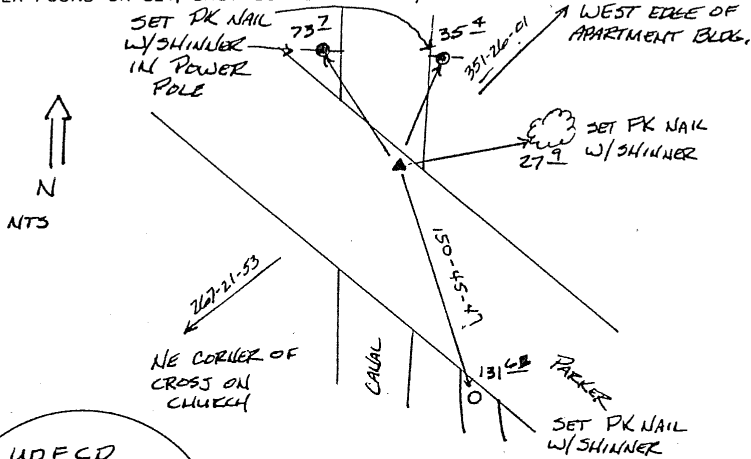 SET PK NAIL
W/SHINNER
IN POWER
POLE
73 7
35 4
351-26-01
WEST EDGE OF
APARTMENT BLDG.
27 9
SET PK NAIL
W/SHINNER
N
NTS
150-45-47
267-21-53
NE CORNER OF
CROSS ON
CHURCH
CANAL
131
PARKER
SET PK NAIL
W/SHINNER
UDFCD